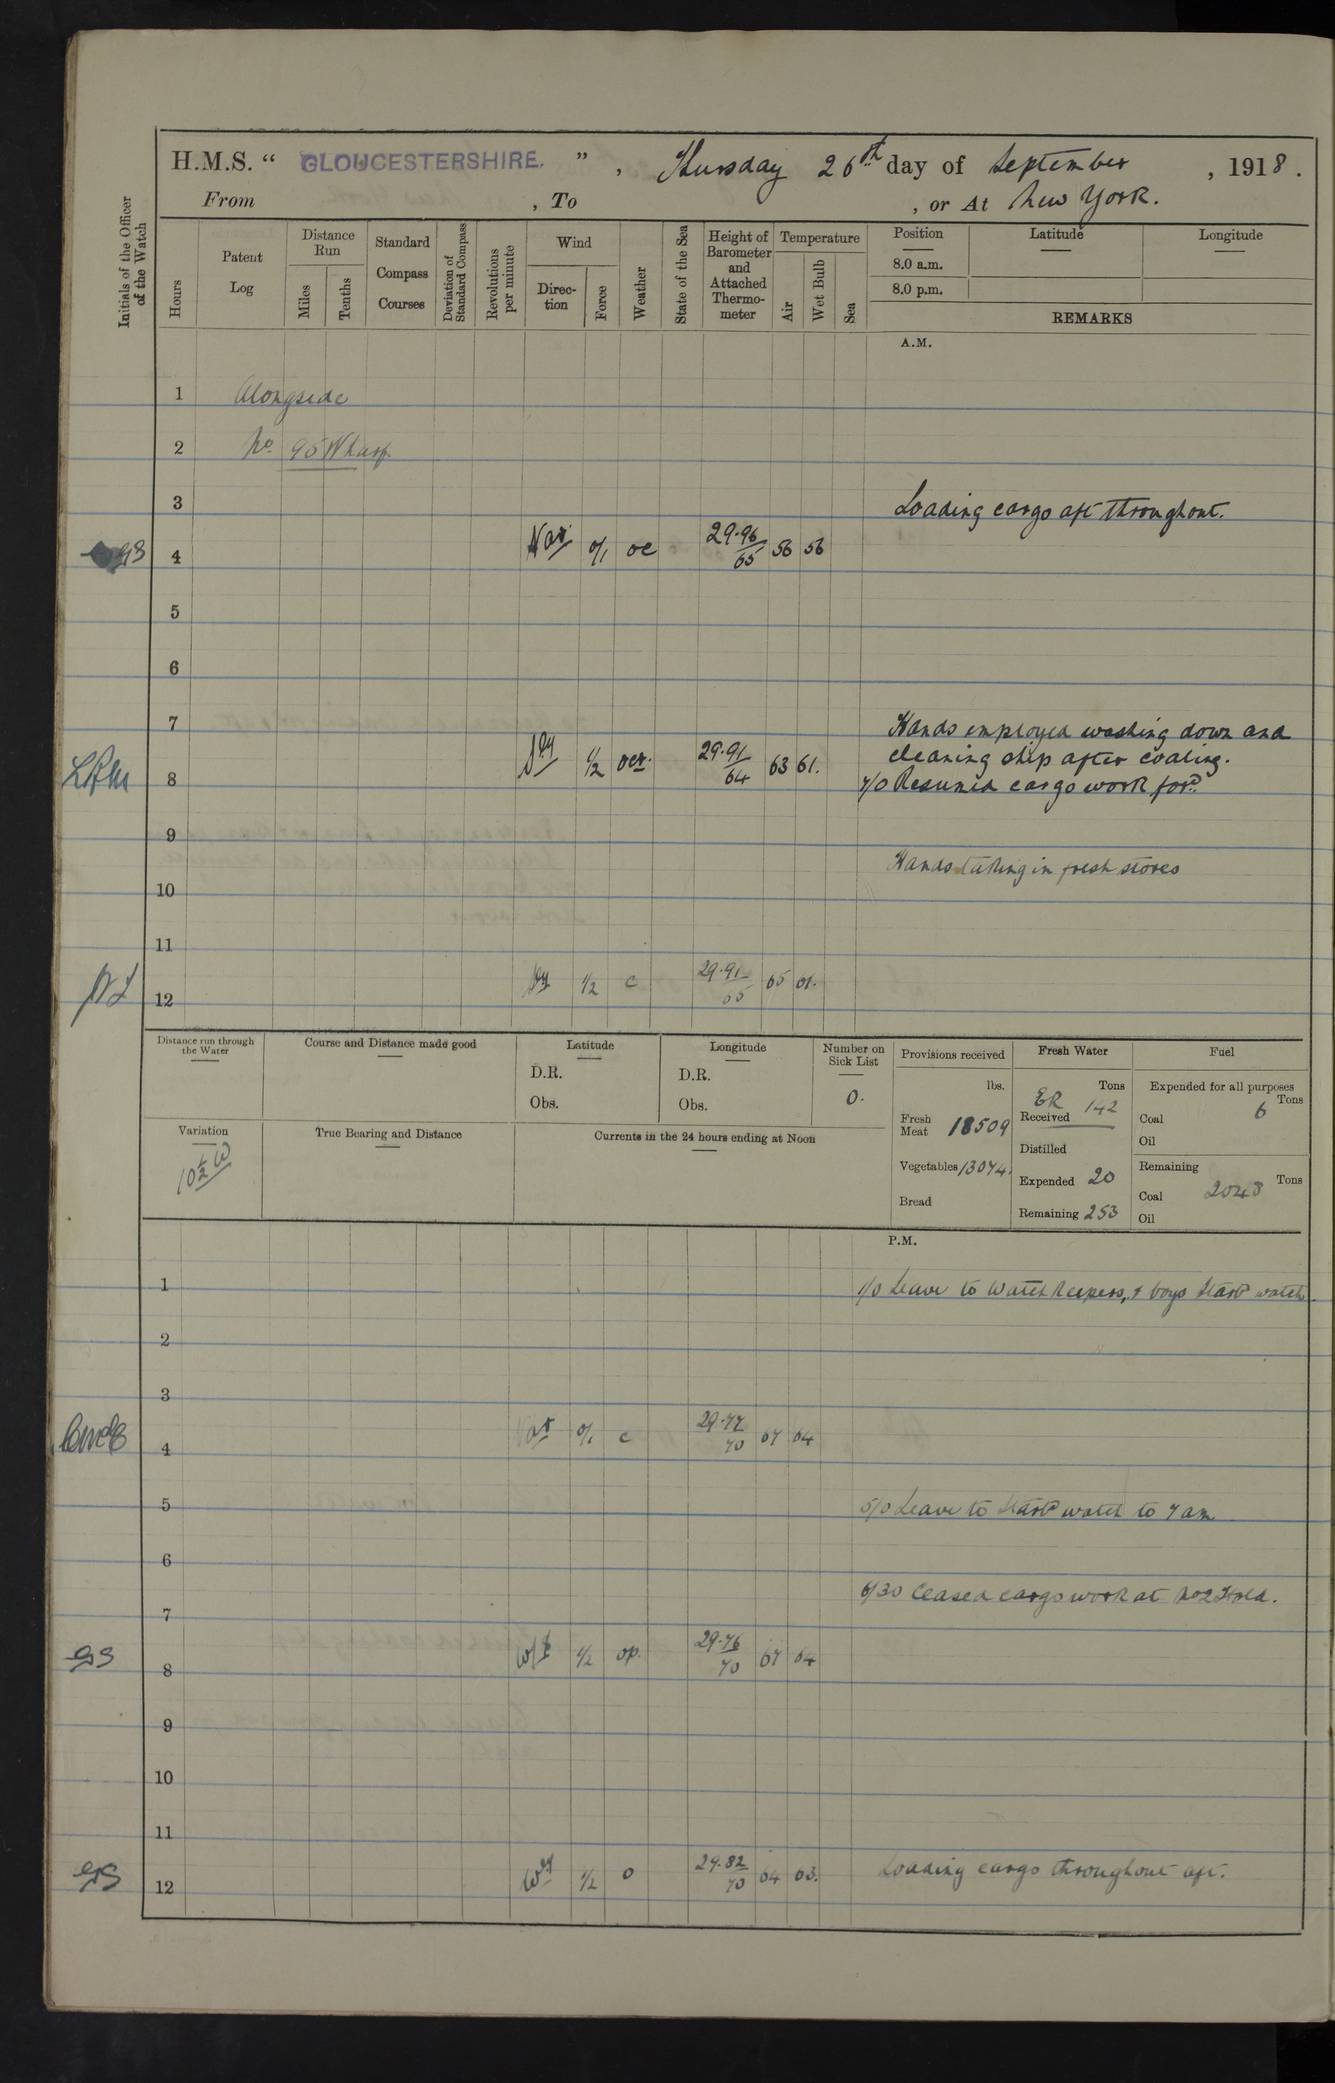 H.M.S. “ GLOUCESTERSHIRE. ” , Thursday 26th day of September , 1918.
From , To , or At New York.
Initials of the Officer of the Watch
Hours
Patent Log
Distance Run
Miles
Tenths
Standard Compass Courses
Deviation of Standard Compass
Revolutions per minute
Wind
Direction
Force
Weather
State of the Sea
Height of Barometer and Attached Thermometer
Temperature
Air
Wet Bulb
Sea
Position
8.0 a.m.
8.0 p.m.
Latitude
Longitude
REMARKS
A.M.
1 Alongside
2 No. 95 Wharf.
3 Loading cargo aft throughout.
4 Var 0/1 oc 29.96/65 56 56
5
6
7 Hands employed washing down and
cleaning ship after coaling.
8 S'ly 1/2 29.91/64 63 61. 7/0 Resumed cargo work ford.
9
Hands taking in fresh stores
10
11
12 1/2 c 29.91/65 65 61.
Distance run through the Water
Course and Distance made good
Latitude
D.R.
Obs.
Longitude
D.R.
Obs.
Number on Sick List
0.
Provisions received
lbs.
Fresh Meat 18509
Vegetables 13074.
Bread
Fresh Water
Tons
ER
Received 142
Distilled
Expended 20
Remaining 253
Fuel
Expended for all purposes
Tons
Coal 6
Oil
Remaining
Tons
Coal 2043
Oil
Variation
10½ W
True Bearing and Distance
Currents in the 24 hours ending at Noon
P.M.
1 1/0 Leave to Watchkeepers, & boys Starbd watch.
2
3
4 Var 0/1 c 29.77/70 67 64
5 5/0 Leave to Starbd watch to 7 am
6
6/30 Ceased cargo work at No 2 Hold.
7
8 1/2 op. 29.76/70 67 64
9
10
11
12 W'ly 1/2 o 29.82/70 64 63. Loading cargo throughout aft.